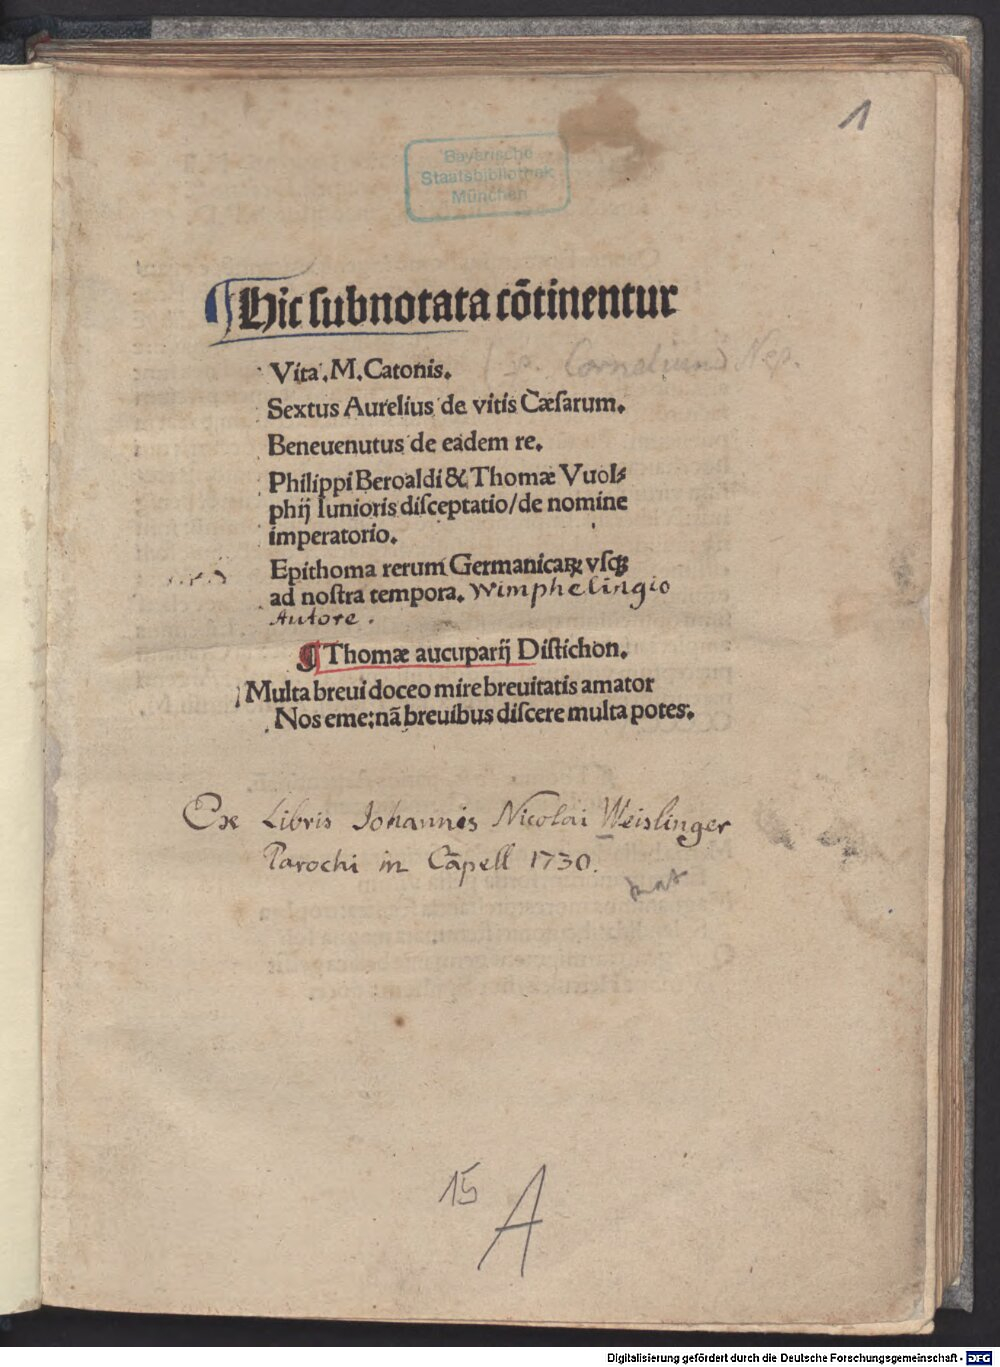 1
Bayerische
Staatsbibliothek
München
¶Hic subnotata cōtinentur
Vita .M. Catonis.
(s. Cornelium Nep.
Sextus Aurelius de vitis Cæsarum.
Beneuenutus de eadem re.
Philippi Beroaldi & Thomæ Vuol⸗
phij Iunioris disceptatio/de nomine
imperatorio.
Epithoma rerum Germanicaꝝ vsqꝫ
ad nostra tempora. Wimphelingio
Autore.
¶Thomæ aucuparij Distichon.
Multa breui doceo mire breuitatis amator
Nos eme:nā breuibus discere multa potes.
Ex Libris Johannis Nicolai Weislinger
Parochi in Cāpell 1730.
15
A
Digitalisierung gefördert durch die Deutsche Forschungsgemeinschaft - DFG